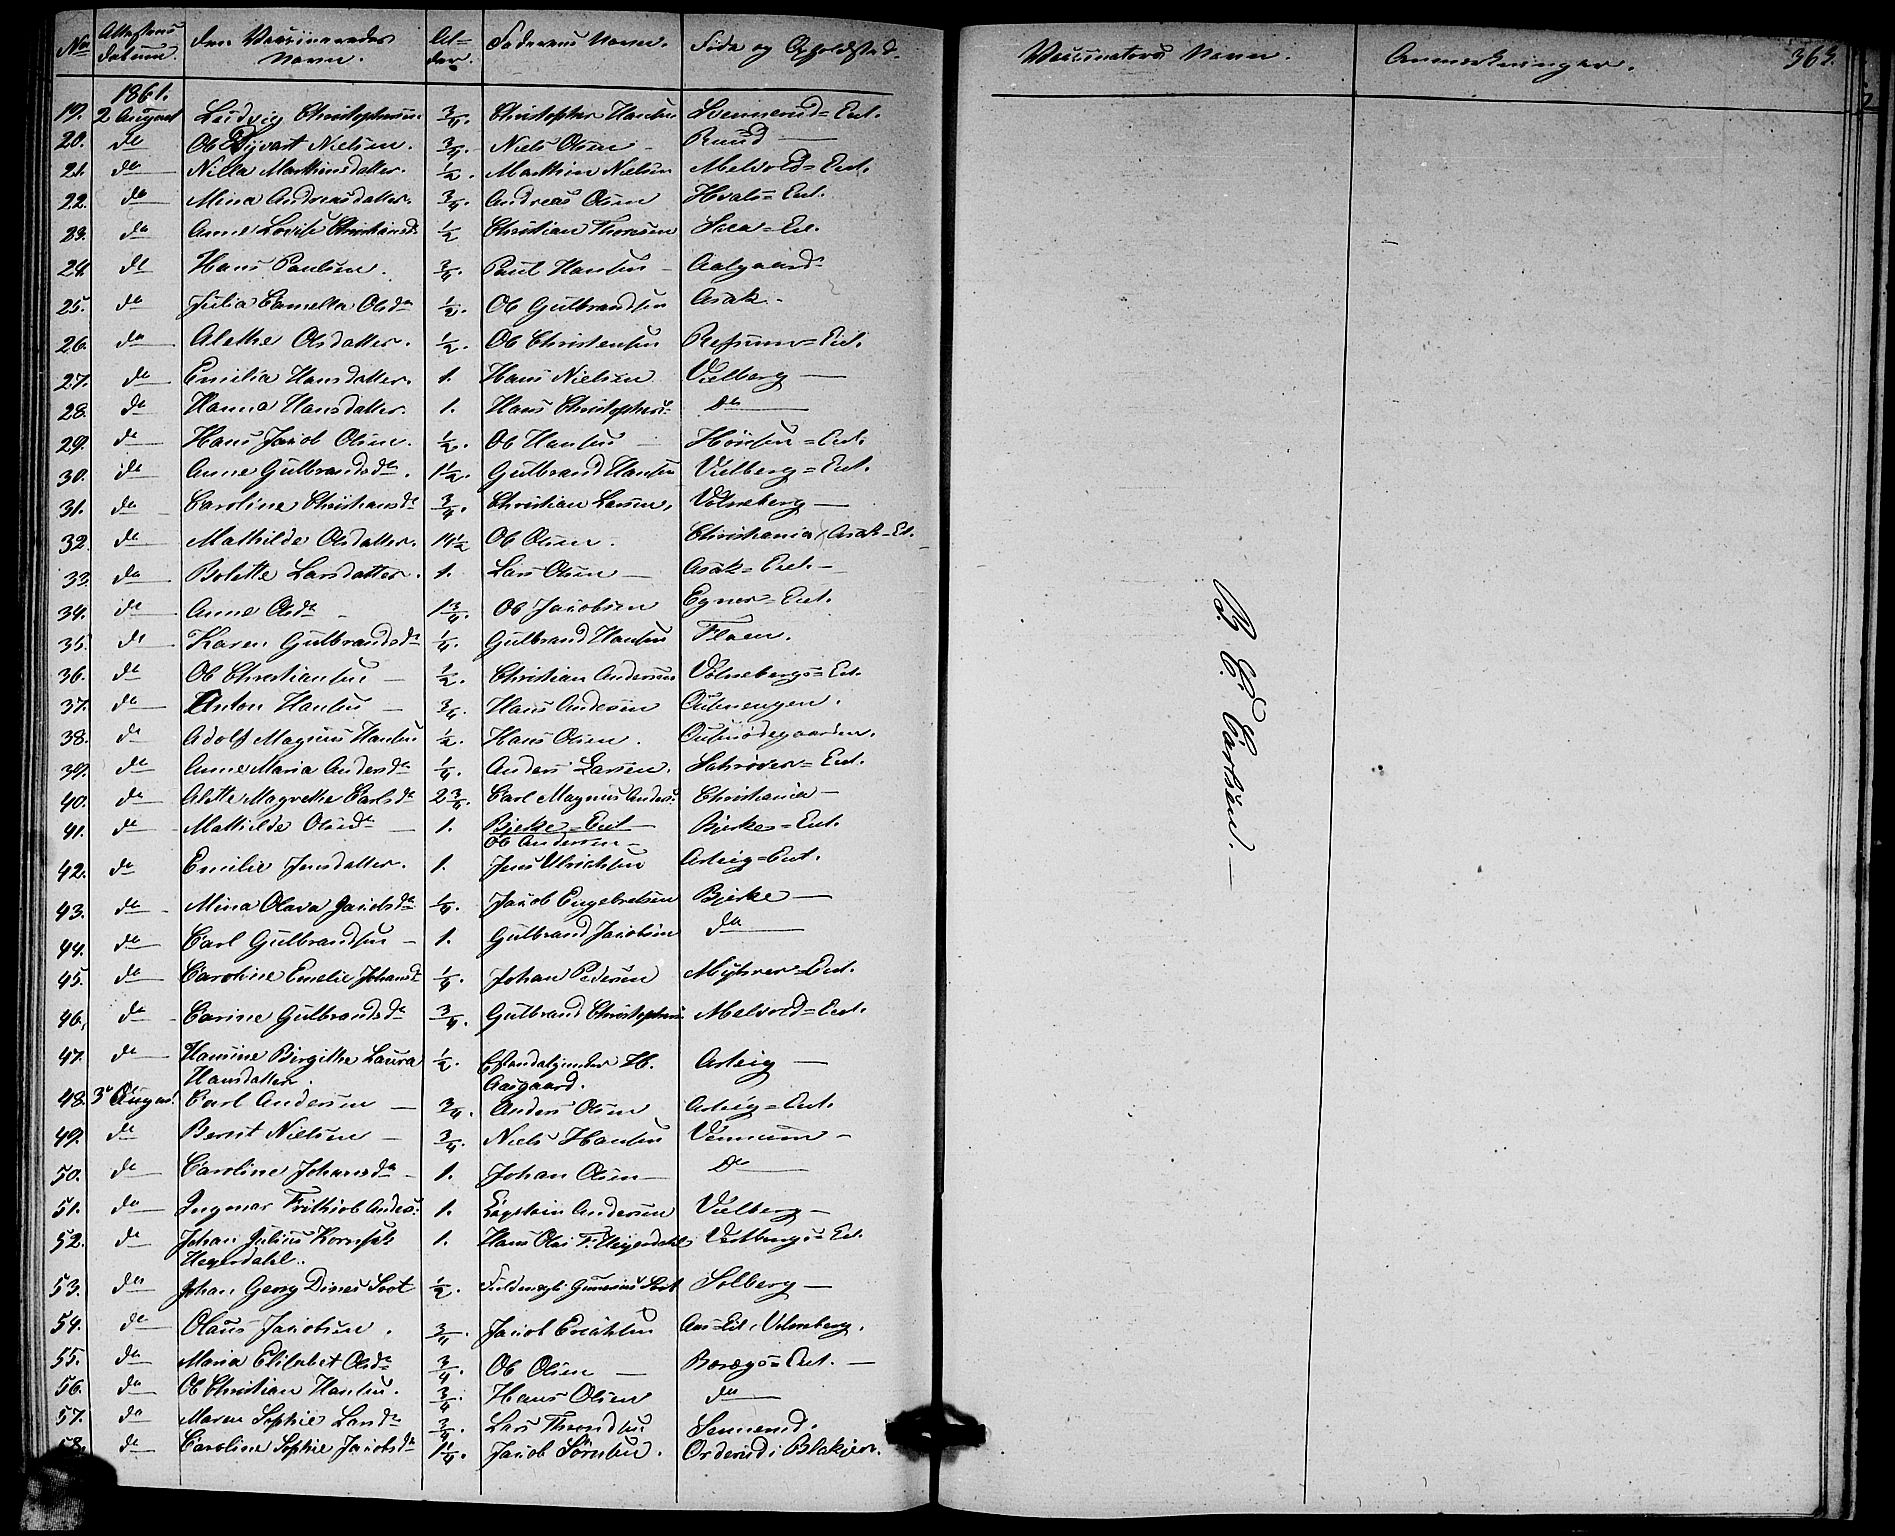 No Attestens Datum. Den Vaccineredes Navn. Alder. Faderens Navn. Føde og Opholdsted.
Vaccinators Navn. Anmerkninger. 363.
1861.
19. 2 August Ludvig Christophersen 3/4. Christopher Hansen Svennerud=Eiet.
20. do Ole Syvert Nielsen. 3/4. Niels Olsen Ruud
21. do Nilla Marthinsdatter. 1/2. Marthin Nielsen Melvold=Eiet.
22. do Mina Andreasdatter. 3/4. Andreas Olsen Hvals=Eiet.
23. do Anne Lovise Christiansd. 1/2 Christian Thoresen =Ei.
24. do Hans Paulsen. 3/4. Paul Hansen Aalgaard
25. do Julia Camella Olsda 1/2. Ole Gulbrandsen Asak
26. do Alethe Olsdatter. 1/2. Ole Christensen Refsum=Eiet.
27. do Emilia Hansdatter. 1. Hans Nielsen Vilberg
28. do Hanna Hansdatter. 1. Hans Christophers: do
29. do Hans Jacob Olsen. 1/2. Ole Hansen Hønsen=Eiet.
30. do Anne Gulbrandsda. 1 1/2. Gulbrand Hansen Vilberg=Eiet.
31. do Caroline Christiansda 3/4. Christian Larsen. Volneberg
32. do Mathilde Olsdatter. 14 1/2 Ole Olsen. Christiania (Asak=Ei.
33. do Bolette Larsdatter. 1. Lars Olsen Asak=Eiet.
34. do Anne Olsda 1 3/4. Ole Jacobsen Egner=Eiet.
35. do Karen Gulbrandsda 1/4. Gulbrand Hansen Floen.
36. do Ole Christiansen 1/2. Christian Andersen Volnebergs=Eiet.
37. do Anton Hansen 3/4. Hans Andersen Ausenengen.
38. do Adolf Magnus Hansen 1/2. Hans Olsen.
39. do Anne Maria Andersda 1/4. Anders Larsen. Schrøver=Eiet.
40. do Alette Magrethe Carlsda 2 3/4. Carl Magnus Anders: Christiania
41. do Mathilde Olsda 1. Bjerke=Eiet Bjerke=Eiet.
Ole Andersen
42. do Emilie Jensdatter. 1. Jens Ulrichsen Asteig=Eiet.
43. do Mina Olava Jacobsda 1/4. Jacob Engebretsen Bjerke
44. do Carl Gulbrandsen 1. Gulbrand Jacobsen do
45. do Caroline Emelie Johansd 1/4. Johan Pedersen Myhrer=Eiet.
46. do Carine Gulbrandsda 3/4. Gulbrand Christophers: Melvold=Eiet.
47. do Hansine Birgithe Laura 1/2. H. Asteig
Hansdatter. Aasgaard.
48. 3de August Carl Andersen 3/4. Anders Olsen Asteig=Eiet.
49. do Bernt Nielsen 3/4. Niels Hansen Vennum
50. do Caroline Johansda 1. Johan Olsen do
51. do Ingmar Frithiob Anders: 1. Capitain Andersen Vilberg
52. do Johan Julius 1. Hans Olai F. Heyerdahl Vestbergs=Ei.
Heyerdahl.
53. do Johan Georg Dines Soot 1/2. Gunerius Soot Solberg
54. do Olaus Jacobsen. 3/4. Jacob Aas=Ei. Volneberg.
55. do Maria Elisabet Olsda 3/4. Ole Olsen =Eiet.
56. do Ole Christian Hansen. 3/4. Hans Olsen do
57. do Maren Sophie Larsda 3/4. Lars Throndsen Sennerud.
58. do Caroline Sophie Jacobsda 1 1/4. Jacob Sørensen. Orderud i Blakjer.
B. E. Carlsen.